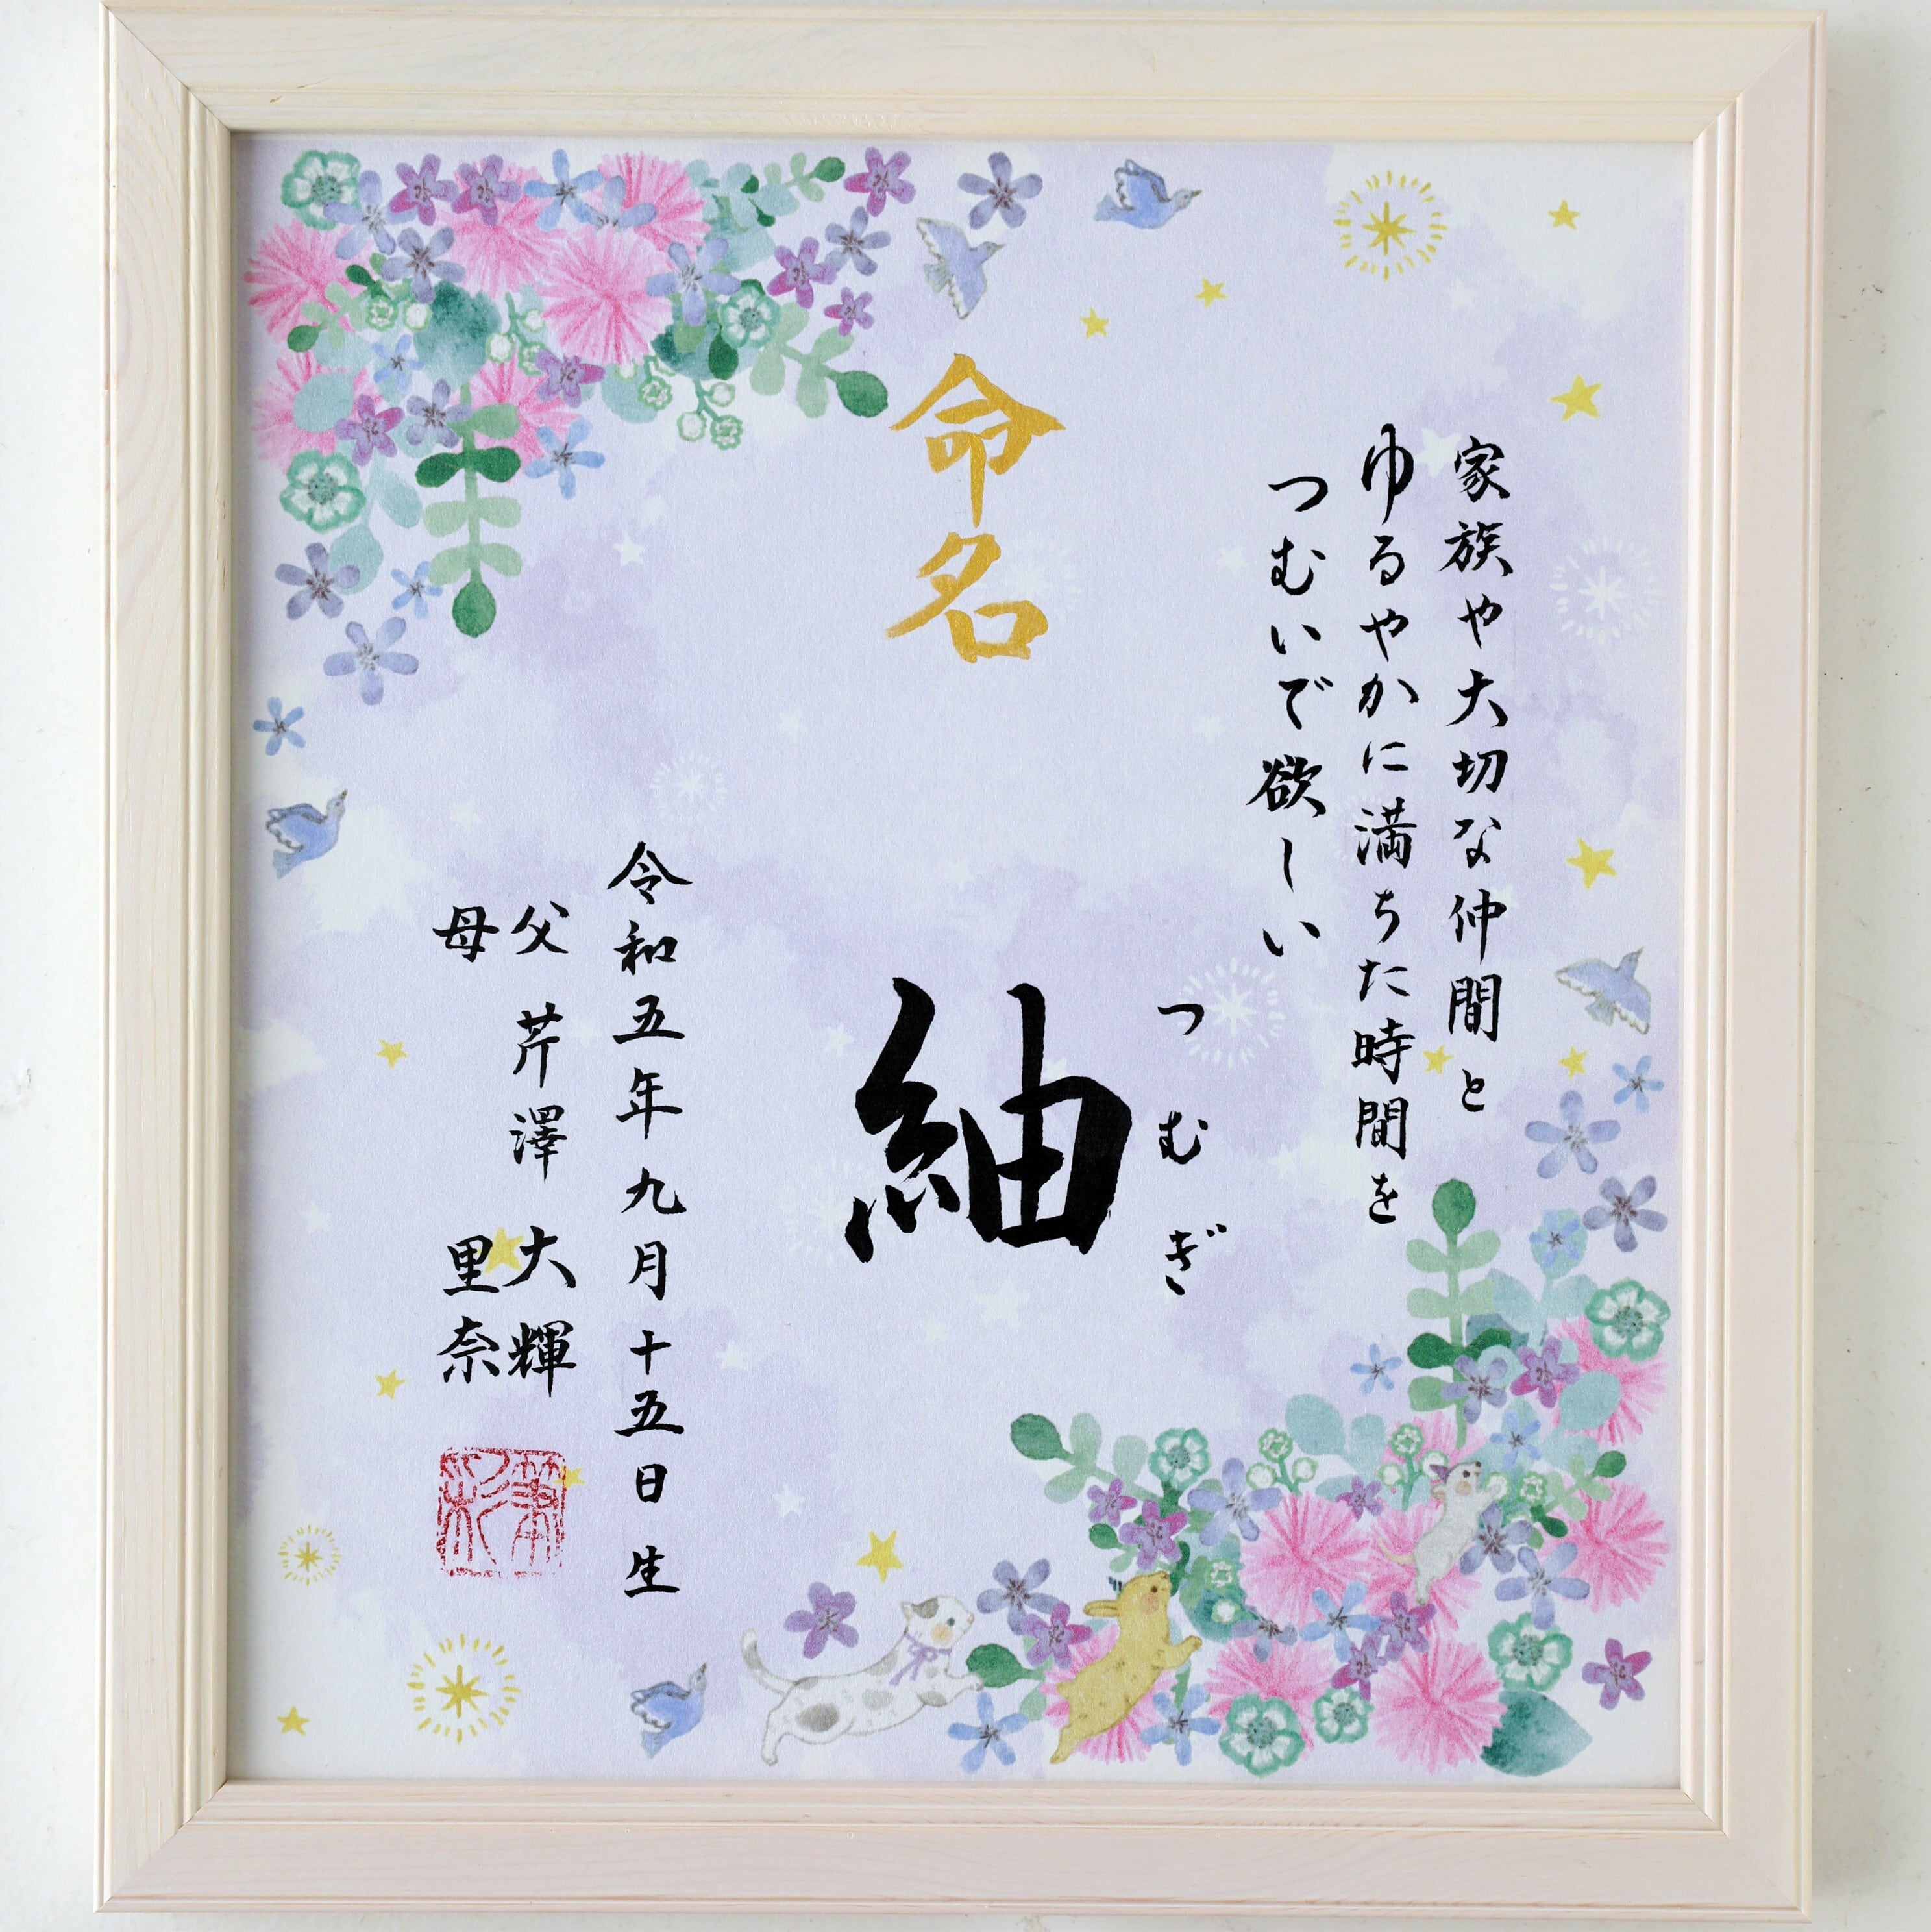 家族や大切な仲間と
ゆるやかに満ちた時間を
つむいで欲しい
命名
つむぎ
紬
令和五年九月十五日生
父 芹澤 大輝
母 里奈